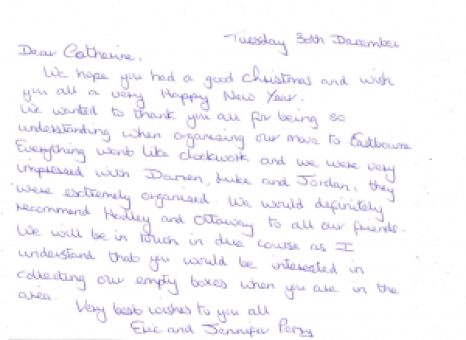 Tuesday 30th December
Dear Catherine.
We hope you had a good Christmas and wish
you all a very Happy New Year.
We wanted to thank you all for being so
understanding when organising our move to Eastbourne
Everything went like clockwork and we were very
impressed with Darren, Luke and Jordan, they
were extremely organised. We would definitely
recommend Hadley and Ottaway to all our friends.
We will be in touch in due course as I
understand that you would be interested in
collecting our empty boxes when you are in the
area.
Very best wishes to you all
Eric and Jennifer Perry